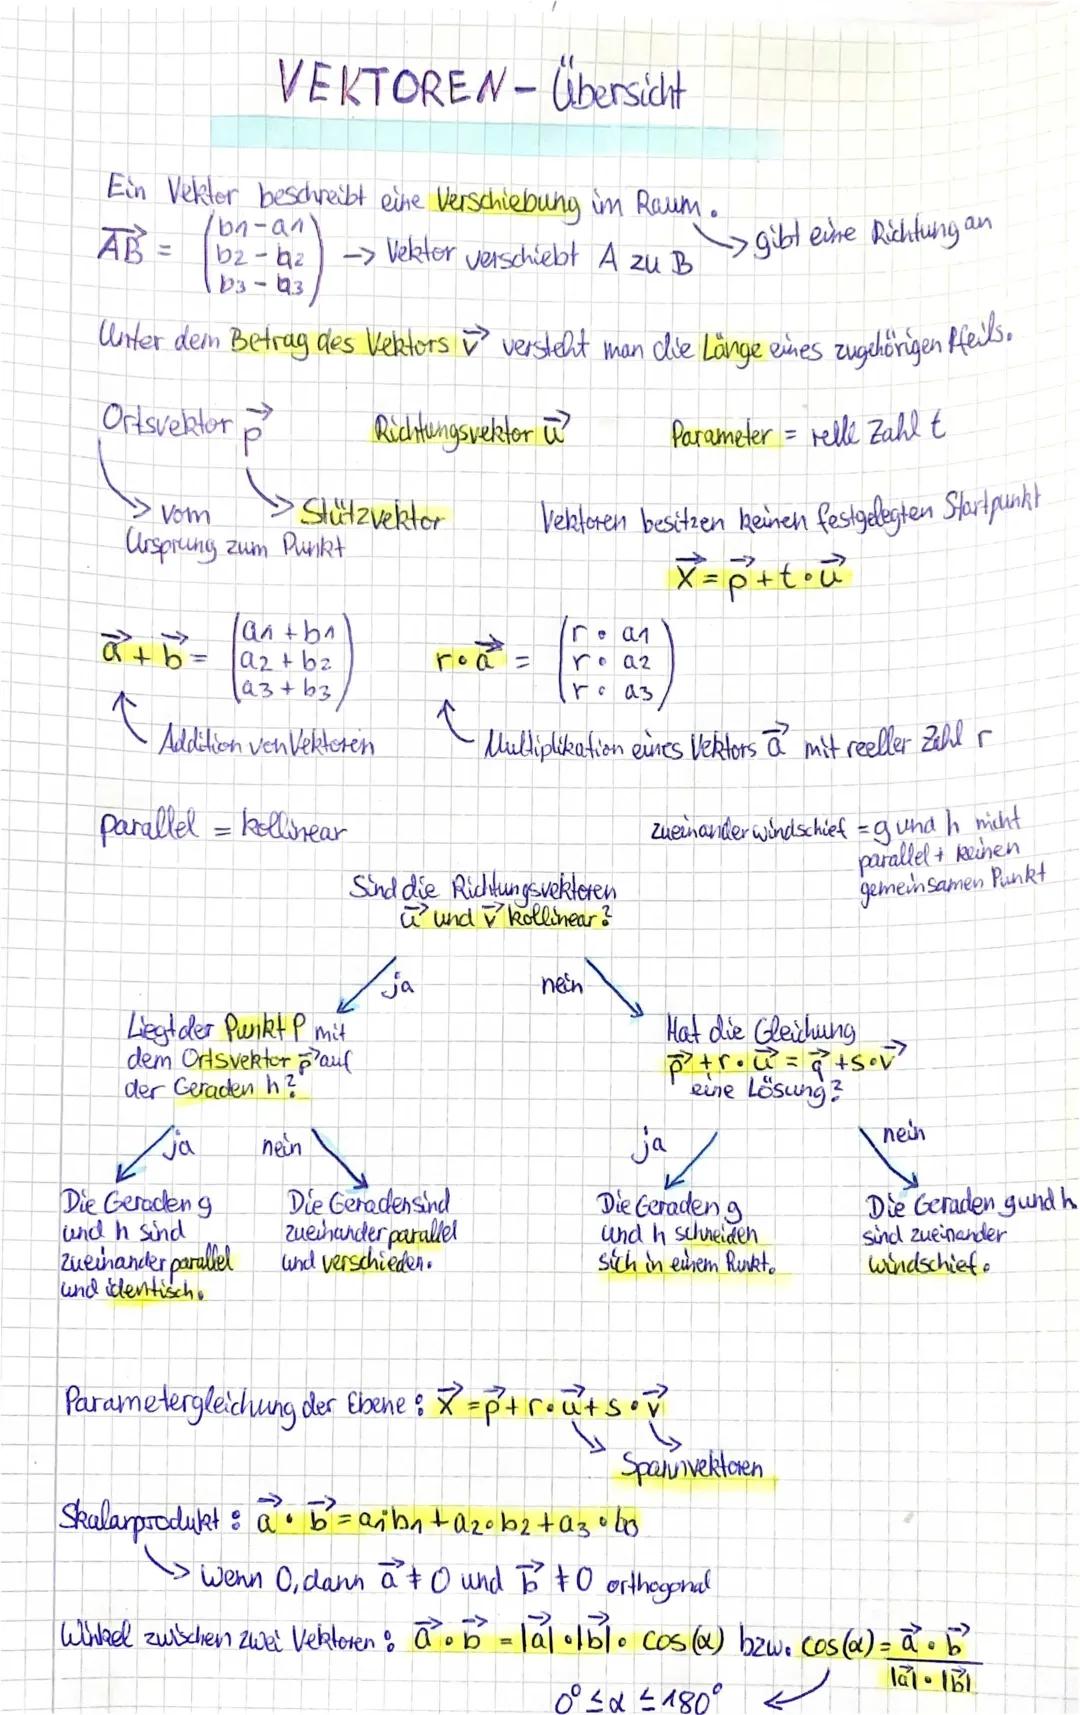 VEKTOREN - Übersicht
Ein Vektor beschreibt eine Verschiebung im Raum.
→ gibt eine Richtung an
$\overrightarrow{AB} = \begin{pmatrix} b_1 - a_1 \\ b_2 - a_2 \\ b_3 - a_3 \end{pmatrix}$ → Vektor verschiebt A zu B
Unter dem Betrag des Vektors $\vec{v}$ versteht man die Länge eines zugehörigen Pfeils.
Ortsvektor $\vec{p}$ Richtungsvektor $\vec{u}$ Parameter = relle Zahl t
→ vom → Stützvektor
Ursprung zum Punkt
Vektoren besitzen keinen festgelegten Startpunkt
$\vec{x} = \vec{p} + t \cdot \vec{u}$
$\vec{a} + \vec{b} = \begin{pmatrix} a_1 + b_1 \\ a_2 + b_2 \\ a_3 + b_3 \end{pmatrix}$ $r \cdot \vec{a} = \begin{pmatrix} r \cdot a_1 \\ r \cdot a_2 \\ r \cdot a_3 \end{pmatrix}$
Addition von Vektoren Multiplikation eines Vektors $\vec{a}$ mit reeller Zahl r
parallel = kollinear
zueinander windschief = g und h nicht
parallel + keinen
gemeinsamen Punkt
Sind die Richtungsvektoren
$\vec{u}$ und $\vec{v}$ kollinear?
ja nein
Liegt der Punkt P mit
dem Ortsvektor $\vec{p}$ auf
der Geraden h?
Hat die Gleichung
$\vec{p} + r \cdot \vec{u} = \vec{q} + s \cdot \vec{v}$
eine Lösung?
ja nein ja nein
Die Geraden g
und h sind
zueinander parallel
und identisch.
Die Geraden sind
zueinander parallel
und verschieden.
Die Geraden g
und h schneiden
sich in einem Punkt.
Die Geraden g und h
sind zueinander
windschief.
Parametergleichung der Ebene: $\vec{x} = \vec{p} + r \cdot \vec{u} + s \cdot \vec{v}$
Spannvektoren
Skalarprodukt: $\vec{a} \cdot \vec{b} = a_1 \cdot b_1 + a_2 \cdot b_2 + a_3 \cdot b_3$
→ wenn 0, dann $\vec{a} \neq 0$ und $\vec{b} \neq 0$ orthogonal
Winkel zwischen zwei Vektoren: $\vec{a} \cdot \vec{b} = |\vec{a}| \cdot |\vec{b}| \cdot \cos(\alpha)$ bzw. $\cos(\alpha) = \frac{\vec{a} \cdot \vec{b}}{|\vec{a}| \cdot |\vec{b}|}$
$0° \leq \alpha \leq 180°$